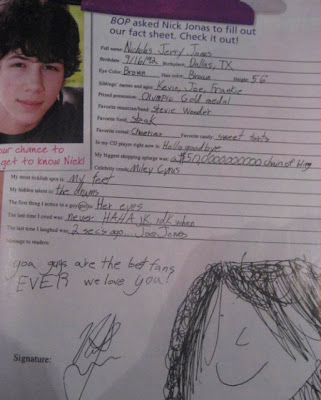 BOP asked Nick Jonas to fill out
our fact sheet. Check it out!
Full name: Nicholas Jerry Jonas
Birthdate: 9/16/92 Birthplace: Dallas, TX
Eye Color: Brown Hair color: Brown Height: 5'6"
Siblings' names and ages: Kevin, Joe, Frankie
Prized possession: Olympic Gold medal
Favorite musician/band: Stevie Wonder
Favorite food: Steak
Favorite cereal: Cheerios Favorite candy: sweet tarts
In my CD player right now is: Hellogoodbye
My biggest shopping splurge was: a chain of bling
Celebrity crush: Miley Cyrus
our chance to
get to know Nick!
My most ticklish spot is: My feet
My hidden talent is: the drums
The first thing I notice in a girl is: Her eyes
The last time I cried was: never HAHA JK idk when
The last time I laughed was: 2 secs ago... Joe Jonas
Message to readers:
you guys are the best fans
EVER we love you!
Signature: